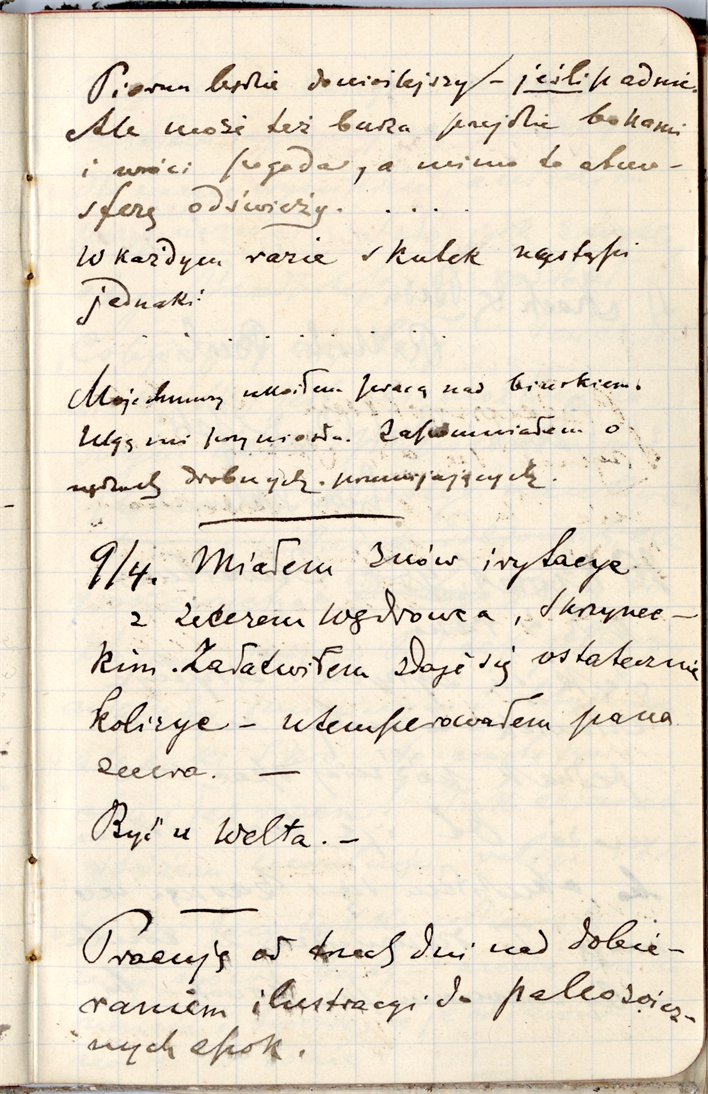 Piorun będzie donioślejszy – jeśli padnie.
Ale może też burza przejdzie bokami
i wróci pogoda, a mimo to atmo-
sferę odświeży. . . . .
W każdym razie skutek nastąpi
jednaki:
. . . . . . . .
Moje chmury ukoiłem pracą nad biurkiem.
Ulgę mi przyniosła. Zapomniałem o
nędzach drobnych. przemijających.
9/4. Miałem znów irytacye
z zecerem Wędrowca, Skrzynec-
kim. Załatwiłem zdaje się ostatecznie
kolizye – utemperowałem pana
zecera. —
Być u Welta. –
Pracuję od trzech dni nad dobie-
raniem ilustracyi do paleozoicz-
nych epok.